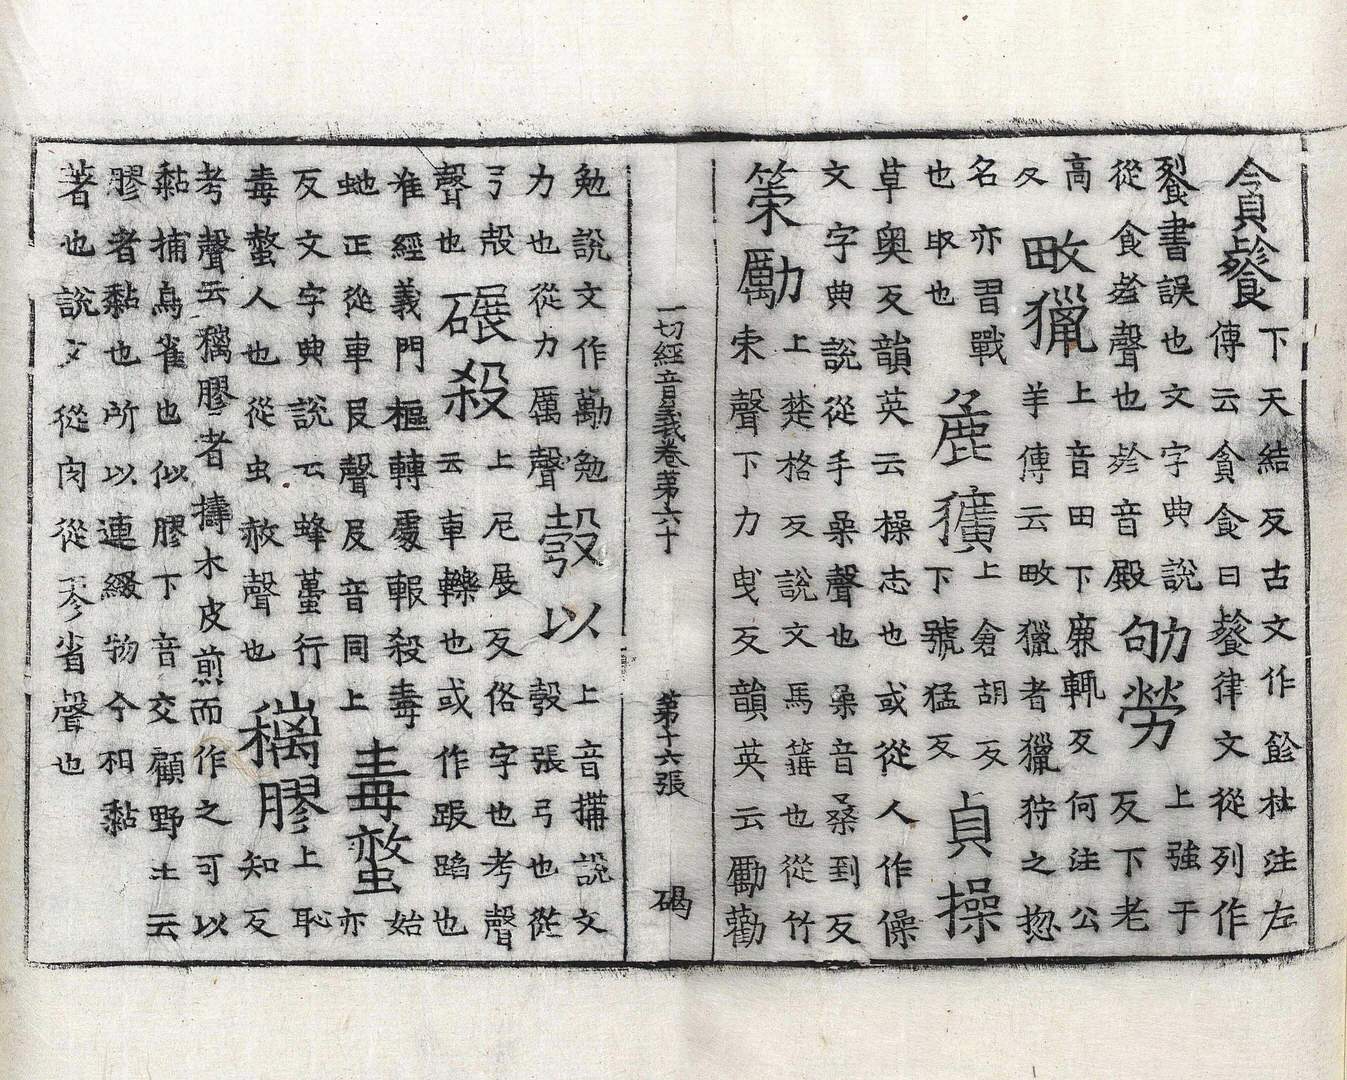 貪餮下天結反古文作飻杜注左
傳云貪食曰餮律文從列作
餮書誤也文字典說
從食㐱聲也㐱音殿劬勞上強于
反下老
高
反畋獵上音田下廉輒反何注公
羊傳云畋獵者獵狩之揔
名亦習戰
也取也麁獷上倉胡反
下號猛反貞操
草奧反韻英云操志也或從人作傮
文字典說從手喿聲也喿音桑到反
策勵上楚格反說文馬箠也從竹
朿聲下力曳反韻英云勵勸
一切經音義卷第六十 第十六張 碣
勉說文作勱勉
力也從力厲聲彀以上音搆說文
彀張弓也從
弓㱿
聲也碾殺上尼展反俗字也考聲
云車轢也或作蹍蹈也
准經義門樞轉處輾殺毒
虵正從車㞋聲㞋音同上毒螫始
亦
反文字典說云蜂蠆行
毒螫人也從虫赦聲也䊩膠上恥
知反
考聲云䊩膠者擣木皮煎而作之可以
黏捕鳥雀也似膠下音交顧野王云
膠者黏也所以連綴物令相黏
著也說文從肉從翏省聲也